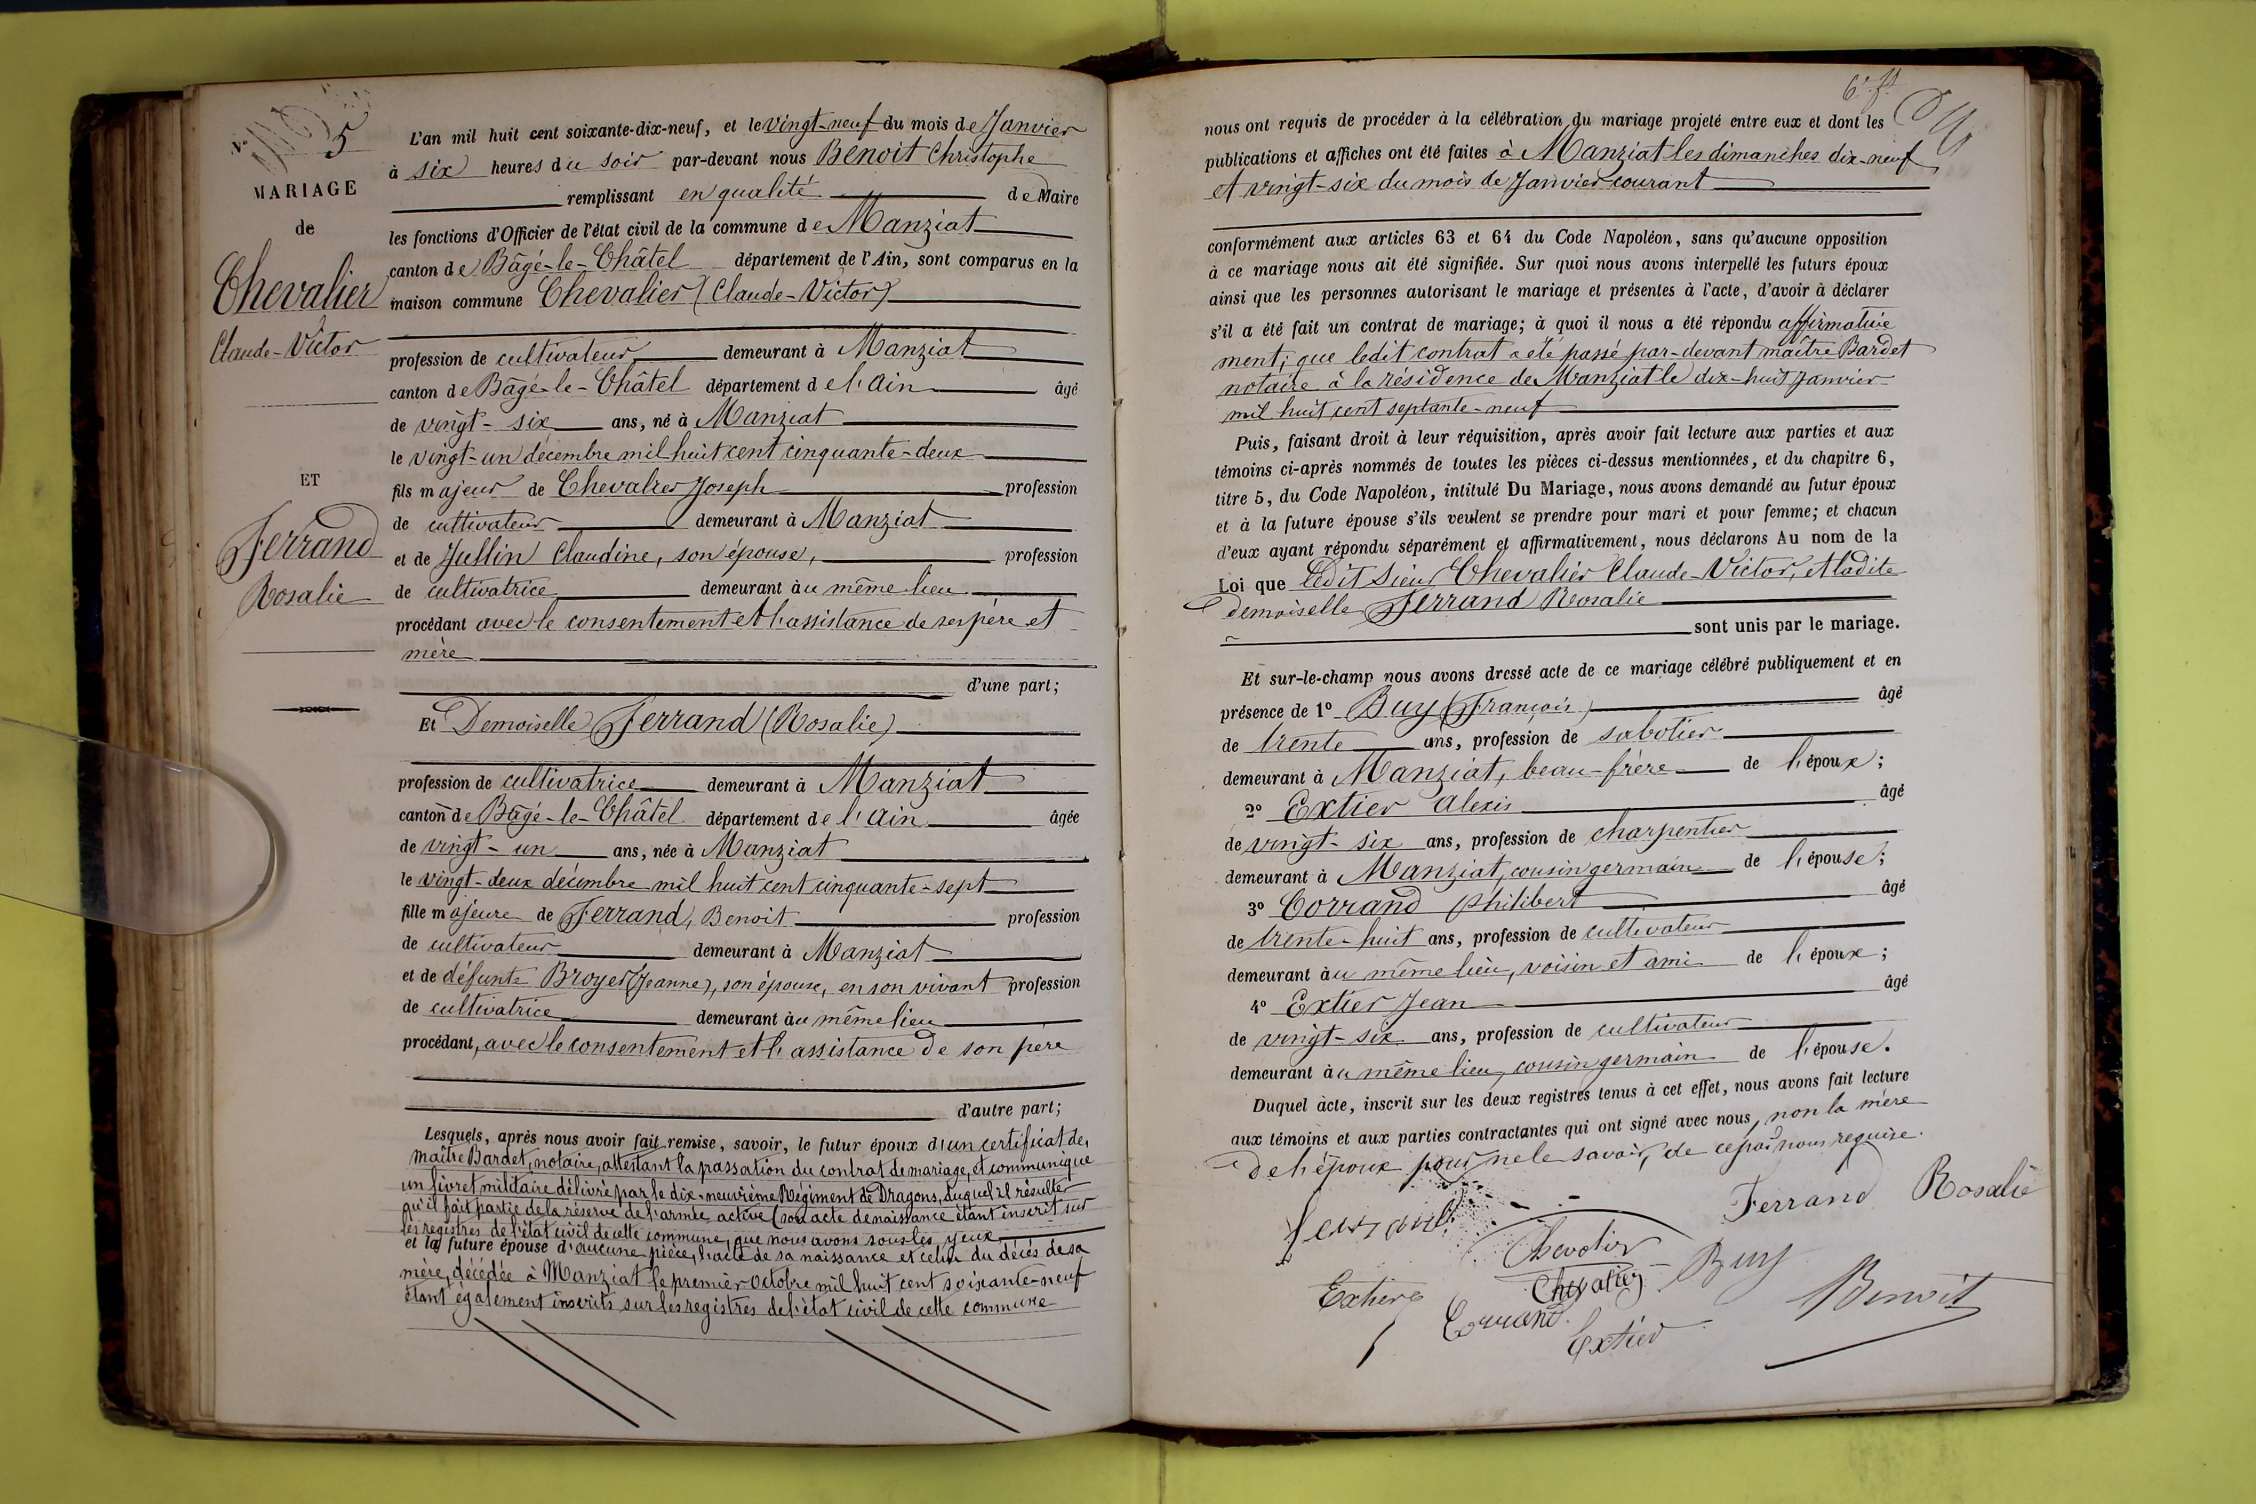 N° 5
MARIAGE
de
Chevalier
Claude-Victor
ET
Ferrand
Rosalie
L'an mil huit cent soixante-dix-neuf, et le vingt-neuf du mois de Janvier
à six heures du soir par-devant nous Benoit Christophe
remplissant en qualité de Maire
les fonctions d'Officier de l'état civil de la commune de Manziat
canton de Bâgé-le-Châtel département de l'Ain, sont comparus en la
maison commune Chevalier (Claude-Victor)
profession de cultivateur demeurant à Manziat
canton de Bâgé-le-Châtel département de l'Ain âgé
de vingt-six ans, né à Manziat
le vingt-un décembre mil huit cent cinquante-deux
fils majeur de Chevalier Joseph profession
de cultivateur demeurant à Manziat
et de Jullin Claudine, son épouse, profession
de cultivatrice demeurant au même lieu
procédant avec le consentement et l'assistance de ses père et
mère
d'une part;
Et Demoiselle Ferrand (Rosalie)
profession de cultivatrice demeurant à Manziat
canton de Bâgé-le-Châtel département de l'Ain âgée
de vingt-un ans, née à Manziat
le vingt-deux décembre mil huit cent cinquante-sept
fille majeure de Ferrand, Benoit profession
de cultivateur demeurant à Manziat
et de défunte Broyer (Jeanne), son épouse, en son vivant profession
de cultivatrice demeurant au même lieu
procédant, avec le consentement et l'assistance de son père
d'autre part;
Lesquels, après nous avoir fait remise, savoir, le futur époux d'un certificat de
maître Bardet, notaire, attestant la passation du contrat de mariage, et communiqué
un livret militaire délivré par le dix-neuvième Régiment de Dragons, duquel il résulte
qu'il fait partie de la réserve de l'armée active (son acte de naissance étant inscrit sur
les registres de l'état civil de cette commune, que nous avons sous les yeux
et la future épouse d'aucune pièce, l'acte de sa naissance et celui du décès de sa
mère, décédée à Manziat le premier octobre mil huit cent soixante-neuf
étant également inscrits sur les registres de l'état civil de cette commune
6e ft
nous ont requis de procéder à la célébration du mariage projeté entre eux et dont les
publications et affiches ont été faites à Manziat les dimanches dix-neuf
et vingt-six du mois de Janvier courant
conformément aux articles 63 et 64 du Code Napoléon, sans qu'aucune opposition
à ce mariage nous ait été signifiée. Sur quoi nous avons interpellé les futurs époux
ainsi que les personnes autorisant le mariage et présentes à l'acte, d'avoir à déclarer
s'il a été fait un contrat de mariage; à quoi il nous a été répondu affirmative
ment; que ledit contrat a été passé par-devant maître Bardet
notaire à la résidence de Manziat le dix-huit Janvier
mil huit cent septante-neuf
Puis, faisant droit à leur réquisition, après avoir fait lecture aux parties et aux
témoins ci-après nommés de toutes les pièces ci-dessus mentionnées, et du chapitre 6,
titre 5, du Code Napoléon, intitulé Du Mariage, nous avons demandé au futur époux
et à la future épouse s'ils veulent se prendre pour mari et pour femme; et chacun
d'eux ayant répondu séparément et affirmativement, nous déclarons Au nom de la
Loi que ledit Sieur Chevalier Claude-Victor, et ladite
demoiselle Ferrand Rosalie
sont unis par le mariage.
Et sur-le-champ nous avons dressé acte de ce mariage célébré publiquement et en
présence de 1° Buy (François) âgé
de trente ans, profession de sabotier
demeurant à Manziat, beau-frère de l'époux;
2° Extier Alexis âgé
de vingt-six ans, profession de charpentier
demeurant à Manziat, cousin germain de l'épouse;
3° Corrand Philibert âgé
de trente-huit ans, profession de cultivateur
demeurant au même lieu, voisin et ami de l'époux;
4° Extier Jean âgé
de vingt-six ans, profession de cultivateur
demeurant au même lieu, cousin germain de l'épouse.
Duquel acte, inscrit sur les deux registres tenus à cet effet, nous avons fait lecture
aux témoins et aux parties contractantes qui ont signé avec nous, non la mère
de l'époux pour ne le savoir, de ce par nous requise.
Ferrand Rosalie
ferrand
Chevalier
Chevalier
Buy
Extier
Corrand
Extier
Benoit